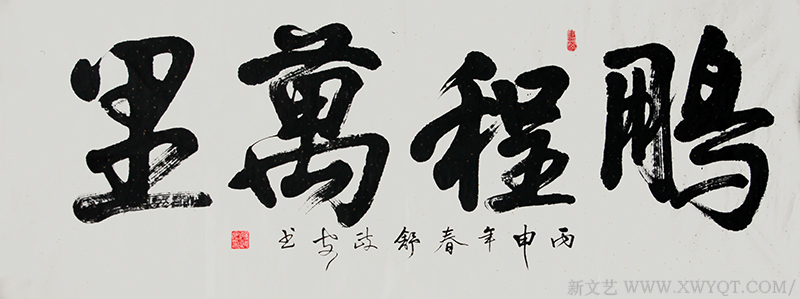 鵬程萬里
丙申年春舒政安书
新文艺 WWW.XWYQT.COM/